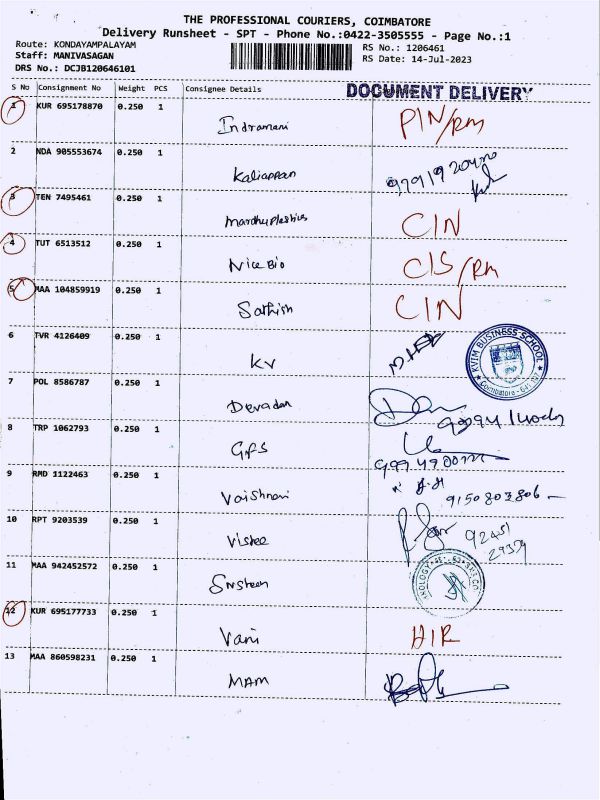 THE PROFESSIONAL COURIERS, COIMBATORE
Delivery Runsheet - SPT - Phone No.:0422-3505555 - Page No.:1
Route: KONDAYAMPALAYAM
RS No.: 1206461
Staff: MANIVASAGAN
RS Date: 14-Jul-2023
DRS No.: DCJB120646101
S No Consignment No Weight PCS Consignee Details DOCUMENT DELIVERY
1 KUR 695178870 0.250 1
Indramani PIN/RM
2 NDA 905553674 0.250 1
Kaliappan
3 TEN 7495461 0.250 1
CIN
4 TUT 6513512 0.250 1
Nice Bio CIS/RM
5 MAA 104859919 0.250 1
Sathish CIN
6 TVR 4126409 0.250 1
KV
KVIM BUSINESS SCHOOL
7 POL 8586787 0.250 1
Devadan
8 TRP 1062793 0.250 1
GPS
9 RMD 1122463 0.250 1
Vaishnavi
10 RPT 9203539 0.250 1
11 MAA 942452572 0.250 1
12 KUR 695177733 0.250 1
Vani HIR
13 MAA 860598231 0.250 1
MAM